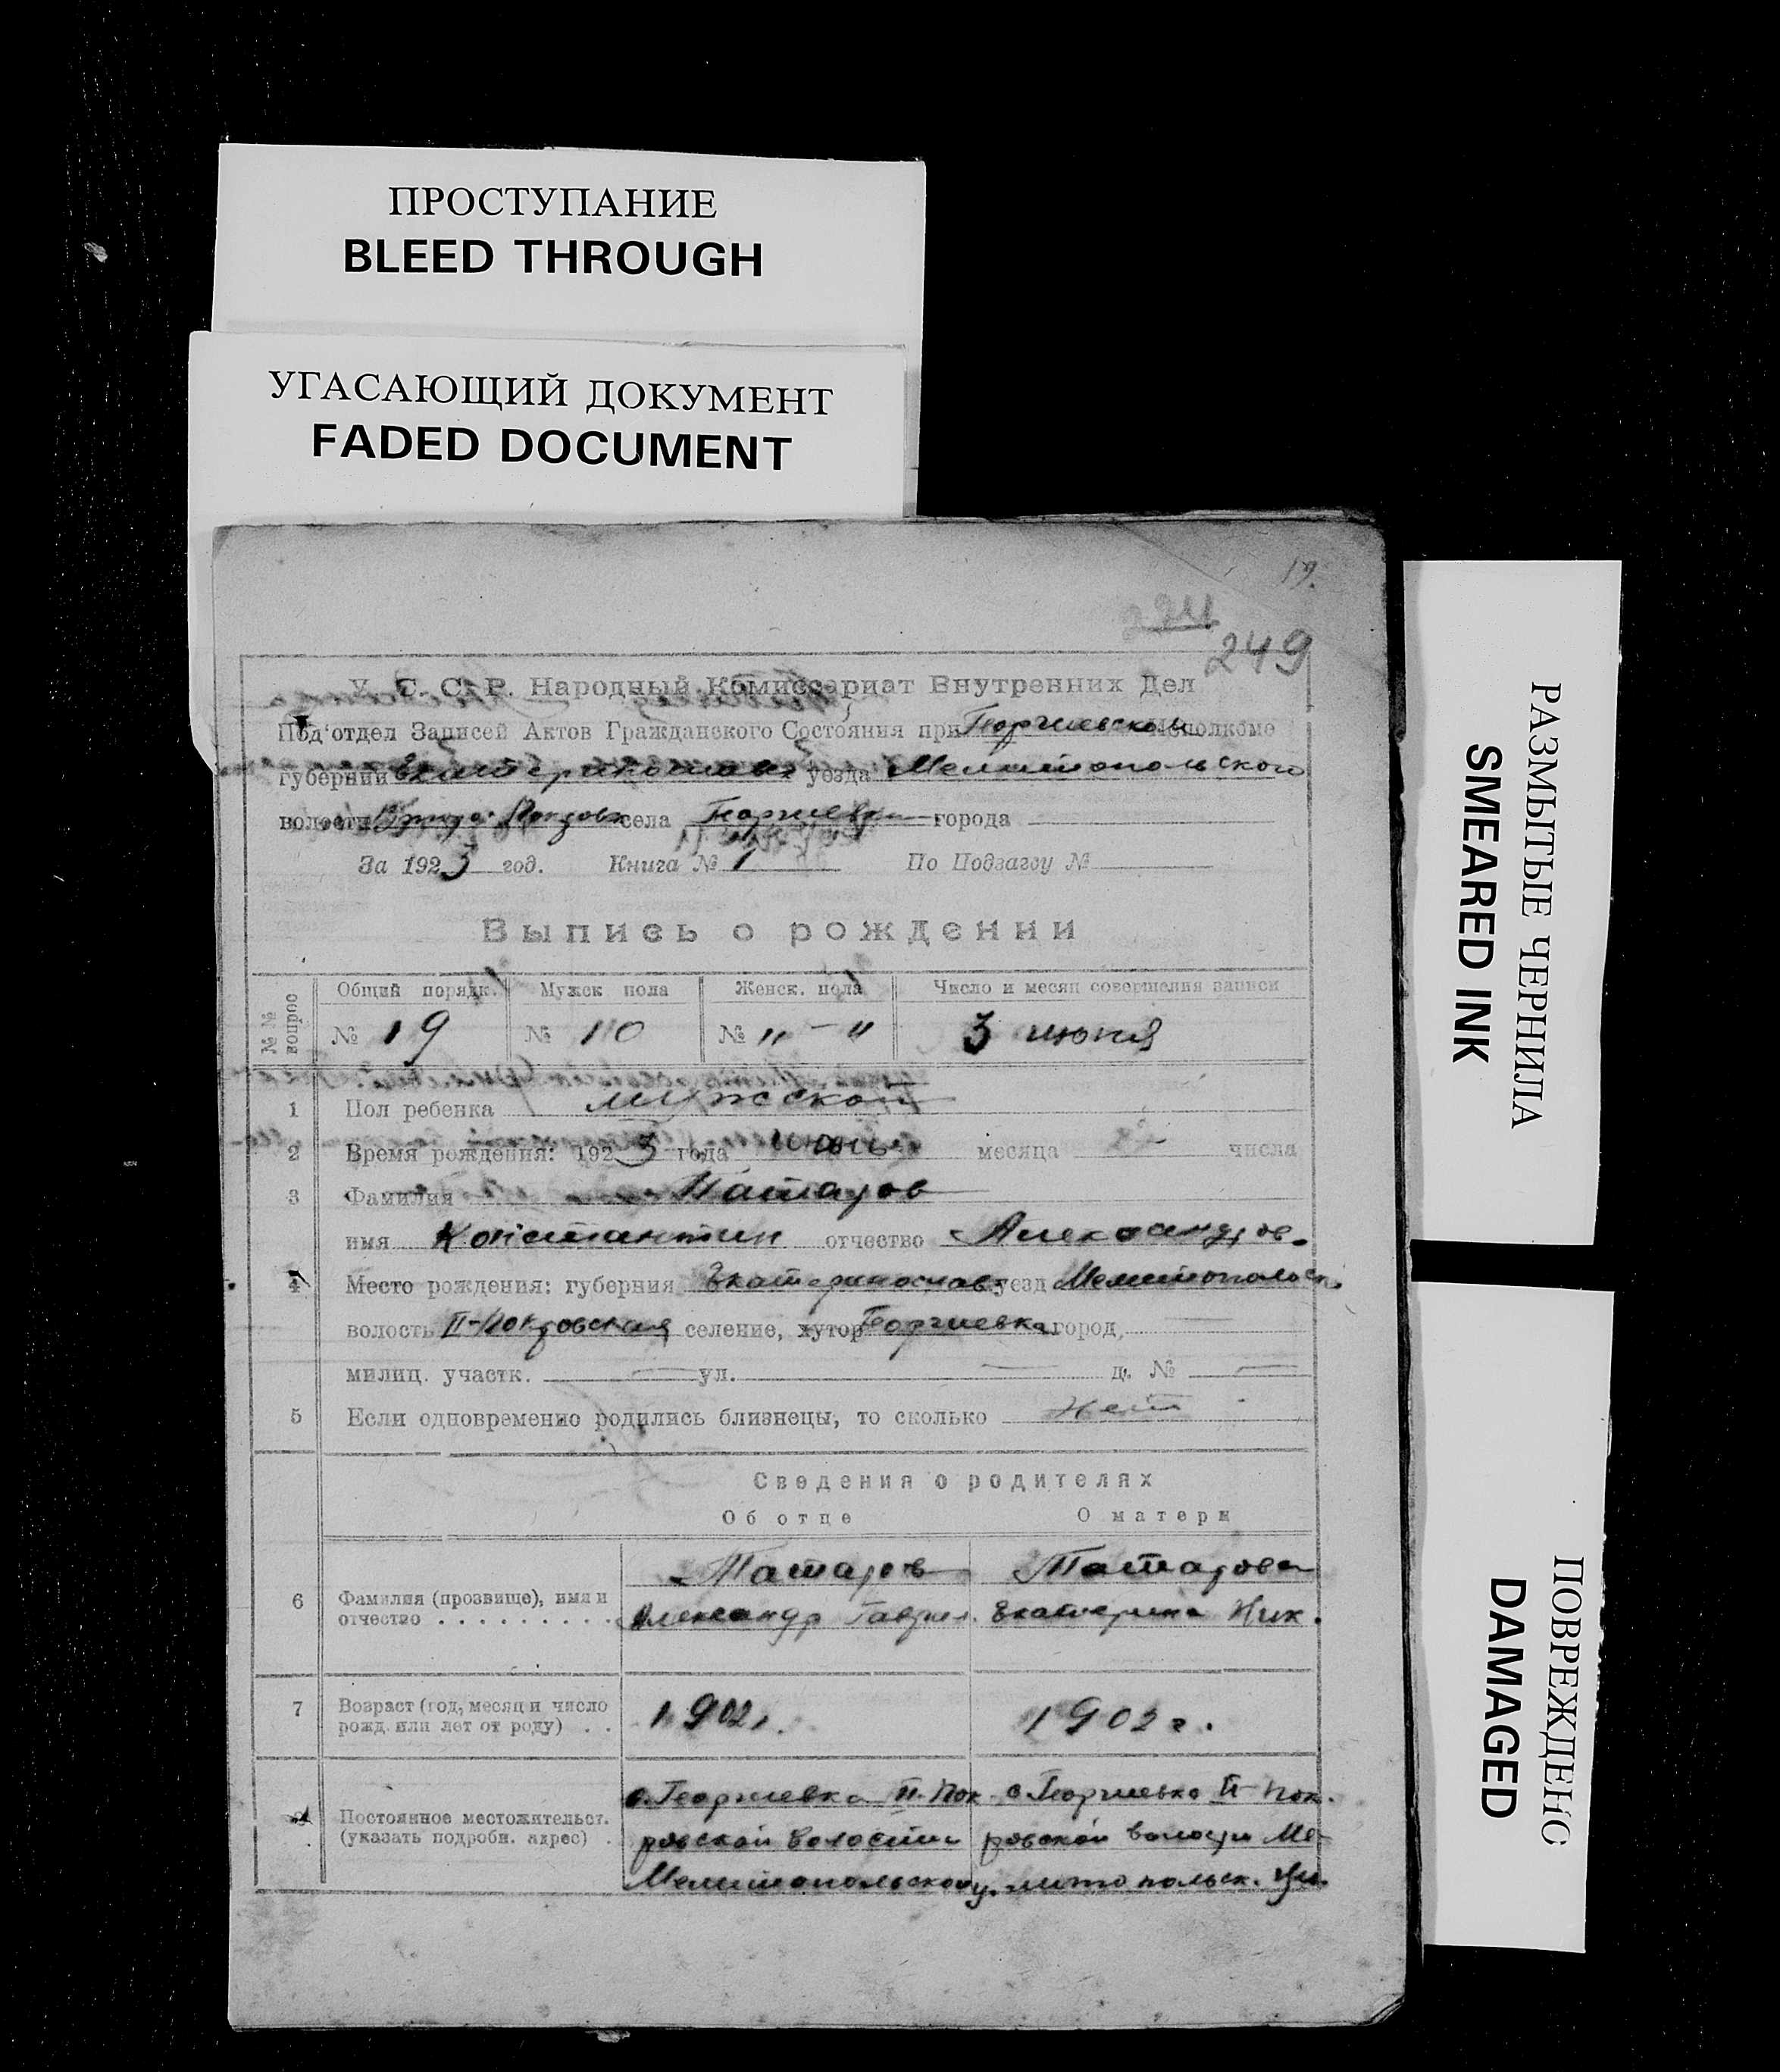 ПРОСТУПАНИЕ
BLEED THROUGH
УГАСАЮЩИЙ ДОКУМЕНТ
FADED DOCUMENT
РАЗМЫТЫЕ ЧЕРНИЛА
SMEARED INK
ПОВРЕЖДЕНС
DAMAGED
19.
224
249
У. С. С. Р. Народный Комиссариат Внутренних Дел
Под'отдел Записей Актов Гражданского Состояния при Георгиевском Исполкоме
губернии Екатеринославск уезда Мелитопольского
волости Покровск села Георгиевки города
За 1923 год. Книга № 1 По Подзагсу №
Выпись о рождении
№№ вопрос Общий порядк. Мужск пола Женск. пола Число и месяц совершения записи
№ 19 № 10 № " — " 3 июня
1 Пол ребенка мужской
2 Время рождения: 1923 года июнь месяца числа
3 Фамилия Татаров
имя Константин отчество Александров.
4 Место рождения: губерния Екатеринославск уезд Мелитопольск.
волость II-Покровская селение, хутор Георгиевка город,
милиц. участк. — ул. — д. № —
5 Если одновременно родились близнецы, то сколько Нет
Сведения о родителях
Об отце О матери
6 Фамилия (прозвище), имя и отчество Татаров Татарова
Александр Гаврил. Екатерина Ник.
7 Возраст (год, месяц и число рожд. или лет от роду) 1902г. 1902г.
Постоянное местожительст. (указать подробн. адрес)
с. Георгиевка II-Пок с. Георгиевка II-Пок.
ровской волости ровской волости Ме-
Мелитопольского у. литопольск. уез.